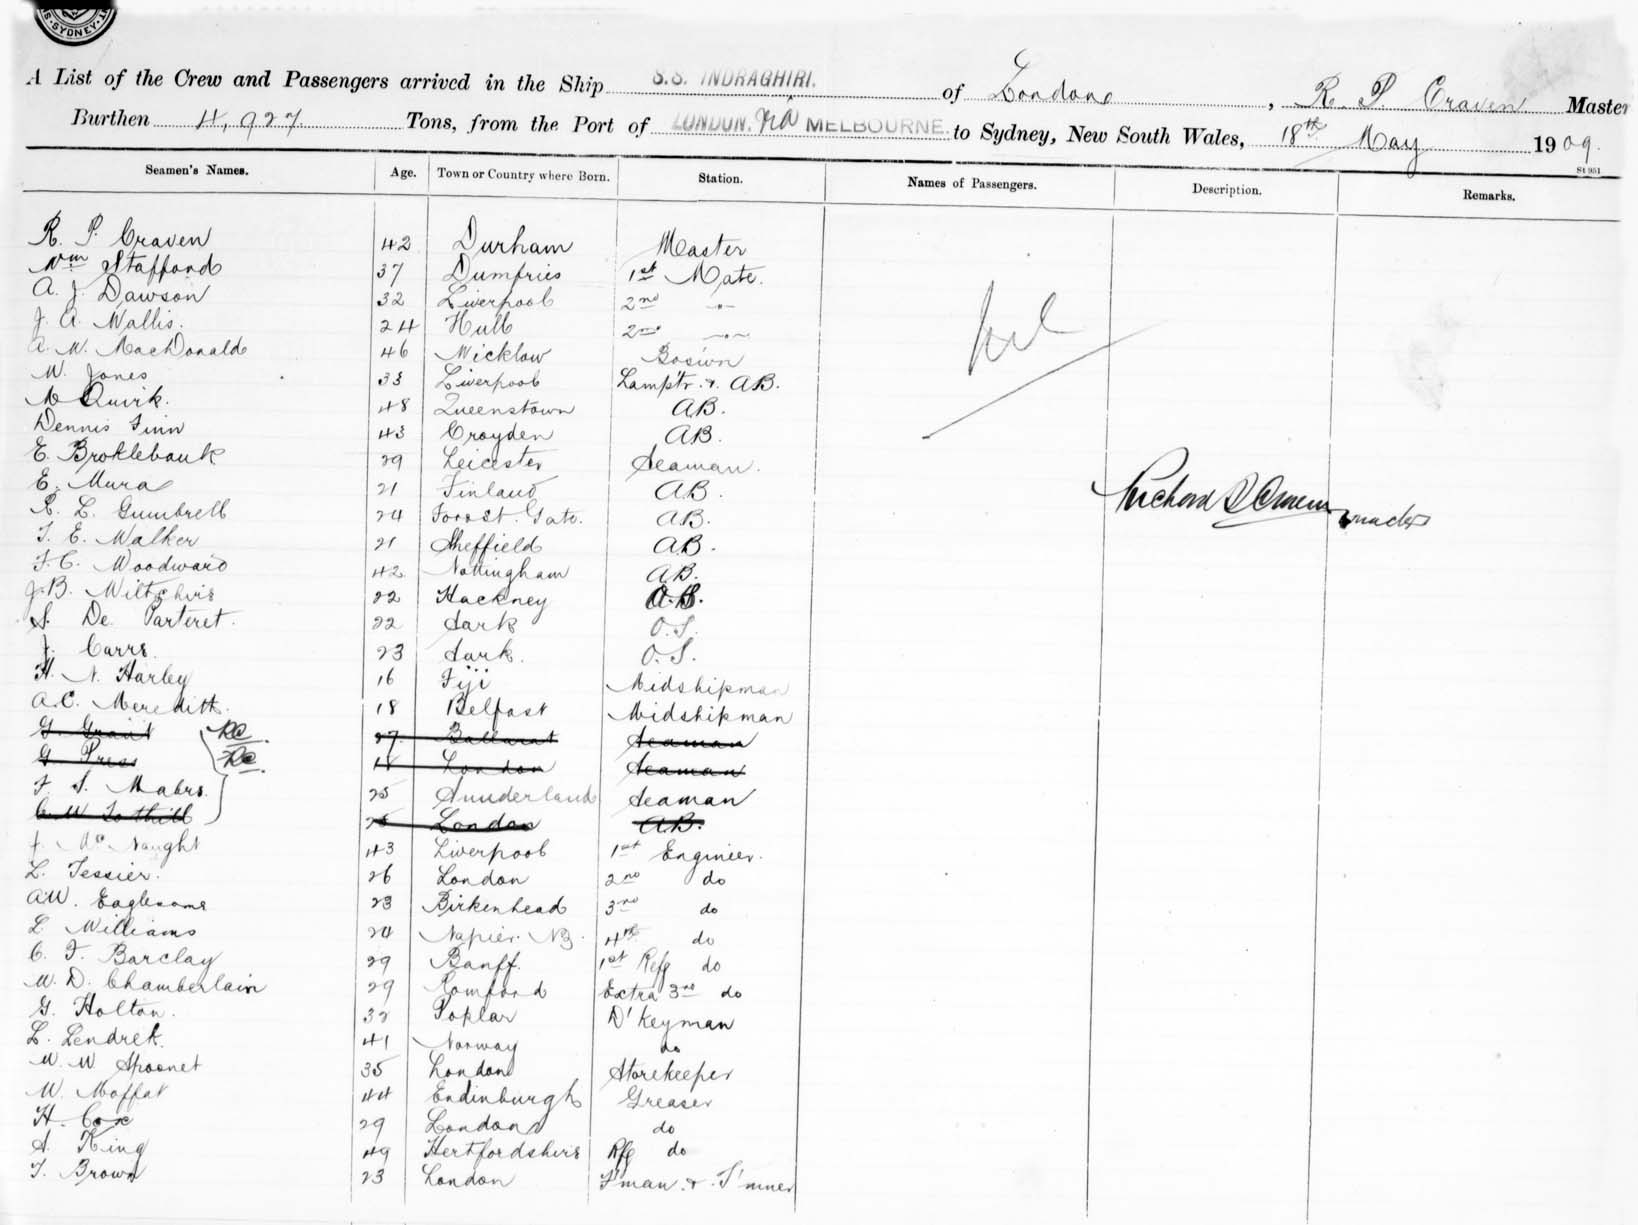 SYDNEY
A List of the Crew and Passengers arrived in the Ship S.S. INDRAGHIRI. of London, R. P. Craven Master
Burthen 4,927 Tons, from the Port of LONDON. via MELBOURNE. to Sydney, New South Wales, 18th May 1909.
St 951
Seamen's Names. Age. Town or Country where Born. Station. Names of Passengers. Description. Remarks.
R. P. Craven 42 Durham Master
Wm Stafford 37 Dumfries 1st Mate.
A. J. Dawson 32 Liverpool 2nd
J. A. Wallis. 24 Hull 2nd
Nil
A. W. MacDonald 46 Wicklow Bosun
W. Jones 33 Liverpool Lamptr. & AB.
M Quirk. 48 Queenstown AB.
Dennis Finn 43 Croyden AB.
E. Broklebank 29 Leicester Seaman.
E. Mura 21 Finland AB.
R. L. Gumbrell 24 Forest Gate. AB.
Richard P Craven master
T. E. Walker 21 Sheffield AB.
F. C. Woodward 42 Nottingham AB.
J. B. Wiltshire 22 Hackney
S. De Carteret. 22 Sark O.S.
J. Carre. 23 Sark. O.S.
H. N. Harley 16 Fiji Midshipman
A. C. Meredith. 18 Belfast Midshipman
G. Grant RC 27 Ballarat Seaman
G Press RC London Seaman
F. S. Mabrs. 25 Sunderland Seaman
C. W Tothill London AB.
J. McNaught 43 Liverpool 1st Engineer.
L. Tessier. 26 London 2nd do
A. W. Eaglesome 23 Birkenhead 3rd do
L. Williams 24 Napier. NZ. 4th do
C. F. Barclay 29 Banff. 1st Refg do
W. D. Chamberlain 29 Romford Extra 3rd do
G. Holton. 32 Poplar D'Keyman
L. Lendrek. 41 Norway do
W. W Spooner 35 London Storekeeper
W. Moffat 44 Endinburgh Greaser
H. Cox 29 London do
A. King 49 Hertfordshire Rfg do
T. Brown 23 London F'man & T'mmer